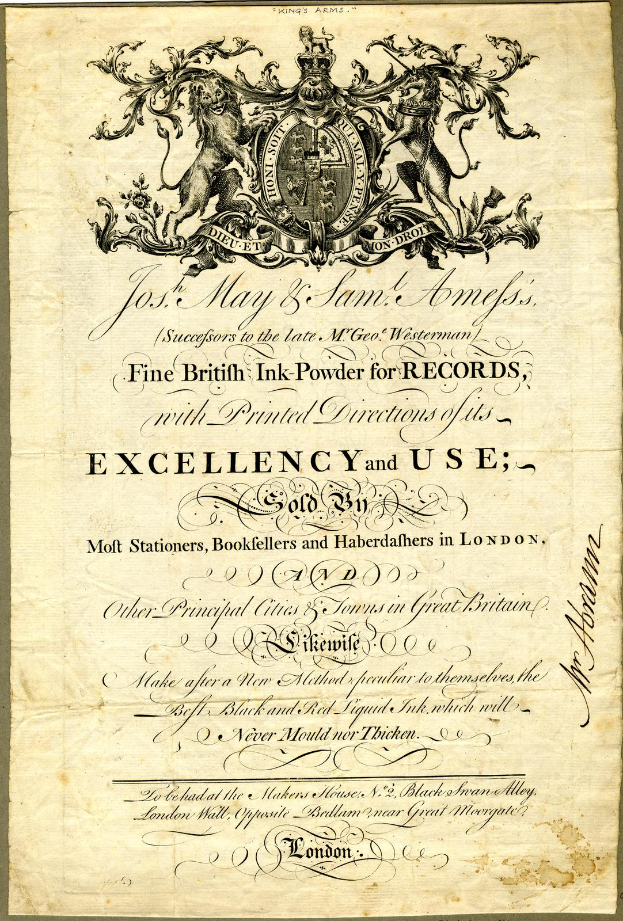 "KING'S ARMS."
HONI·SOIT QUI·MAL·Y·PENSE
DIEU·ET MON·DROIT
Jos.h May & Sam.l Ameſs's,
(Succeſsors to the late M.r Geo.e Westerman)
Fine Britiſh Ink-Powder for RECORDS,
with Printed Directions of its
EXCELLENCY and USE;
Sold By
Moſt Stationers, Bookſellers and Haberdaſhers in LONDON,
AND
Other Principal Cities & Towns in Great Britain.
Likewiſe
Make after a New Method, peculiar to themselves, the
Beſt Black and Red Liquid Ink, which will
Never Mould nor Thicken.
To be had at the Makers House, N.o 2, Black Swan Alley,
London Wall, Opposite Bedlam, near Great Moorgate
London.
Mr